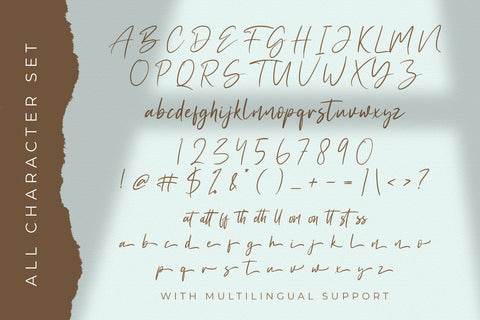 ALL CHARACTER SET
A B C D E F G H I J K L M N
O P Q R S T U V W X Y Z
abcdefghijklmnopqrstuvwxyz
1 2 3 4 5 6 7 8 9 0
! @ # $ % & " ( ) _ + - = / | \ < > ?
at att ff th dth ll on on tt st ss
a b c d e f g h i j k l m n o
p q r s t u v w x y z
WITH MULTILINGUAL SUPPORT